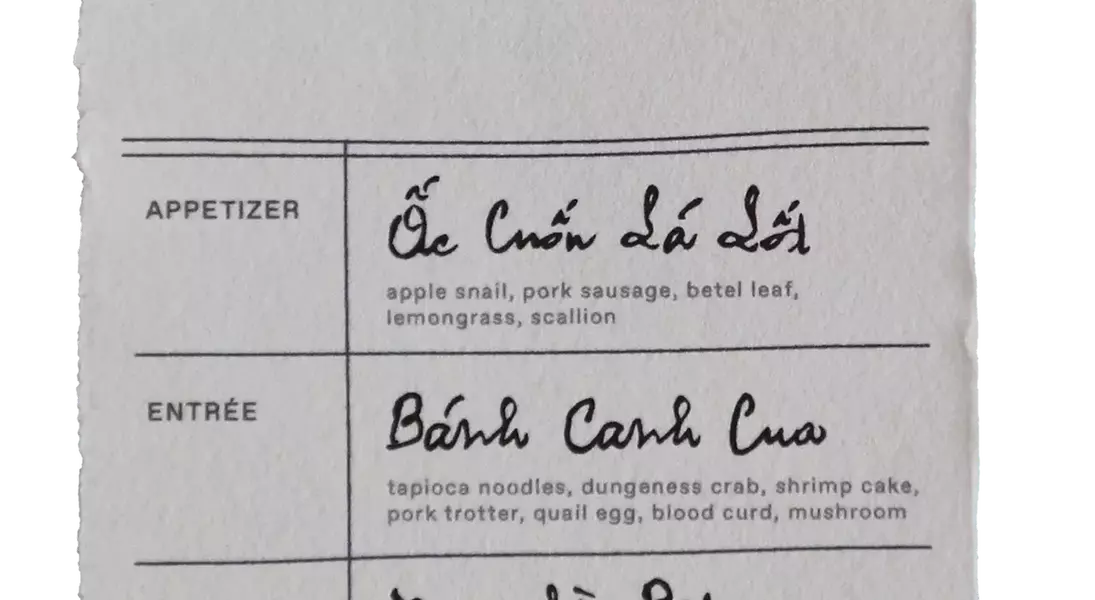 APPETIZER
Ốc Cuốn Lá Lốt
apple snail, pork sausage, betel leaf,
lemongrass, scallion
ENTRÉE
Bánh Canh Cua
tapioca noodles, dungeness crab, shrimp cake,
pork trotter, quail egg, blood curd, mushroom